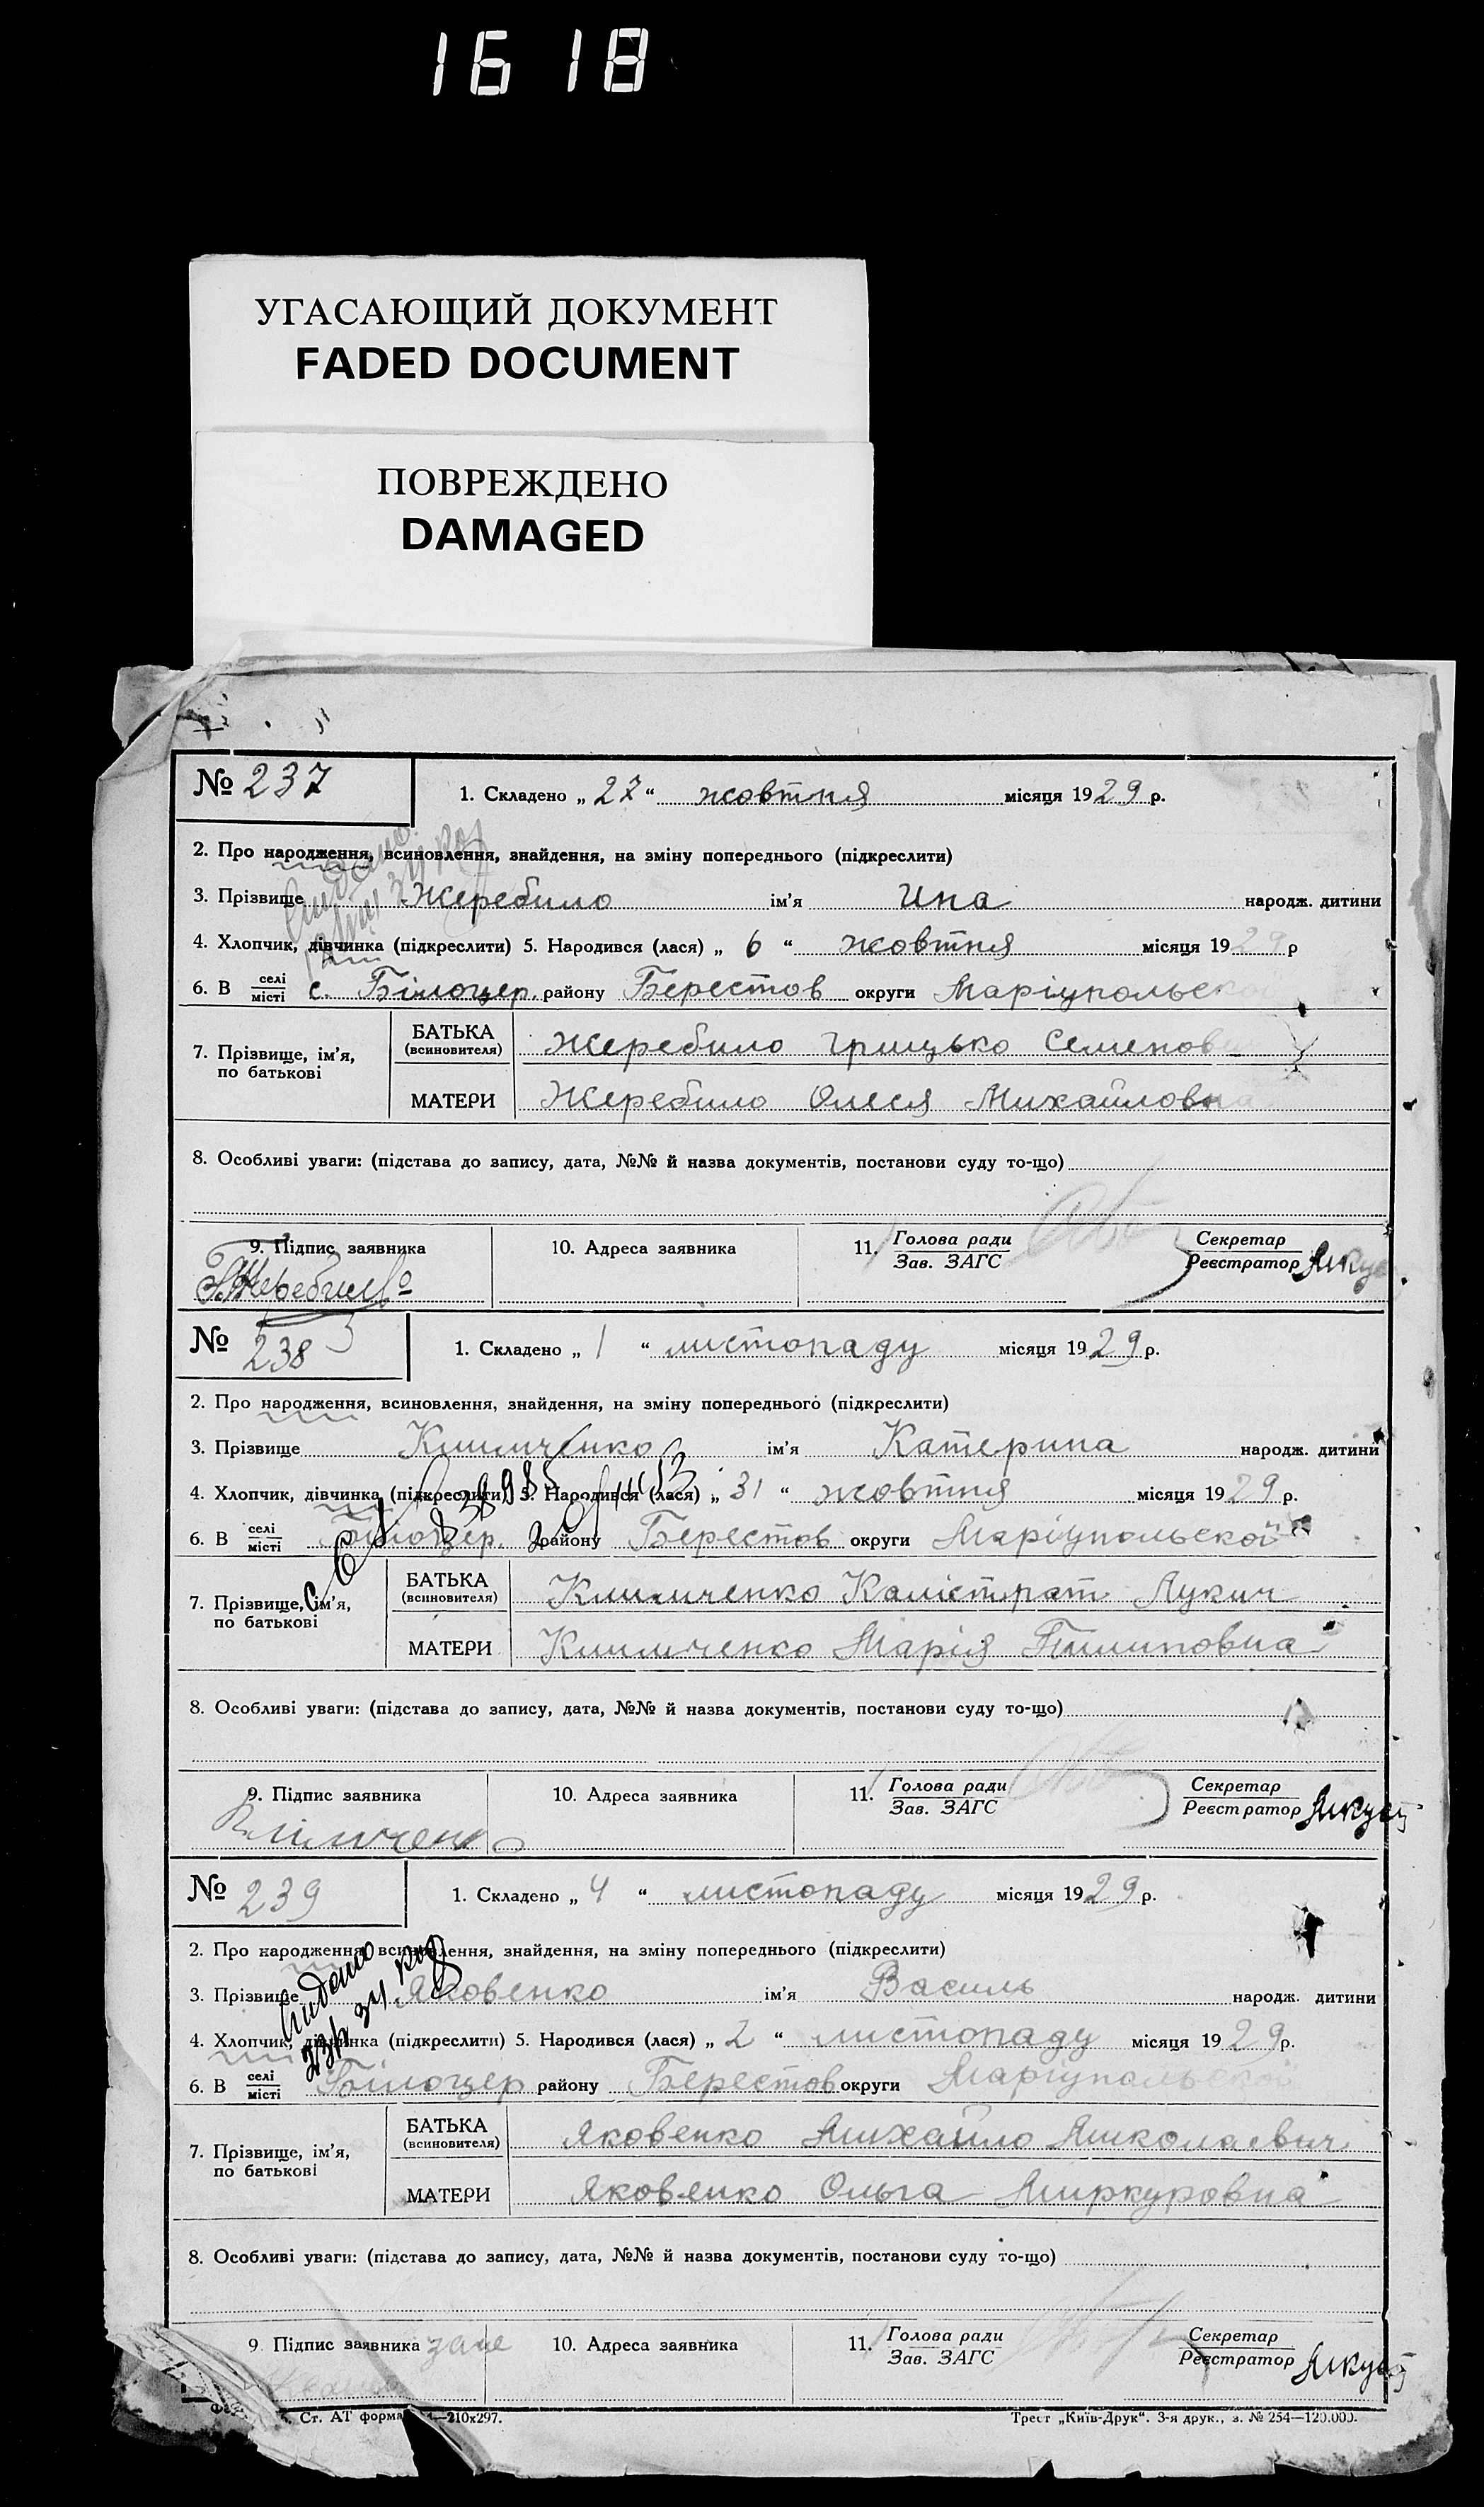 16 18
УГАСАЮЩИЙ ДОКУМЕНТ
FADED DOCUMENT
ПОВРЕЖДЕНО
DAMAGED
№ 237
1. Складено „ 27 “ жовтня місяця 1929 р.
2. Про народження, всиновлення, знайдення, на зміну попереднього (підкреслити)
3. Прізвище Жеребило ім'я Ина народж. дитини
4. Хлопчик, дівчинка (підкреслити) 5. Народився (лася) „ 6 “ жовтня місяця 1929 р
6. В селі місті с. Білоцер. району Берестов округи Маріупольської
7. Прізвище, ім'я, по батькові
БАТЬКА (всиновителя) Жеребило Грицько Семенов
МАТЕРИ Жеребило Олеся Михайловна
8. Особливі уваги: (підстава до запису, дата, №№ й назва документів, постанови суду то-що)
9. Підпис заявника 10. Адреса заявника 11. Голова ради Зав. ЗАГС Секретар Реєстратор
Г. Жеребило
№ 238
1. Складено „ 1 “ листопаду місяця 1929 р.
2. Про народження, всиновлення, знайдення, на зміну попереднього (підкреслити)
3. Прізвище Климченко ім'я Катерина народж. дитини
4. Хлопчик, дівчинка (підкреслити) 5. Народився (лася) „ 31 “ жовтня місяця 1929 р.
6. В селі місті Білоцер. району Берестов округи Маріупольської
7. Прізвище, ім'я, по батькові
БАТЬКА (всиновителя) Климченко Калістрат Лукич
МАТЕРИ Климченко Марія Пилиповна
8. Особливі уваги: (підстава до запису, дата, №№ й назва документів, постанови суду то-що)
9. Підпис заявника 10. Адреса заявника 11. Голова ради Зав. ЗАГС Секретар Реєстратор
Клімченко
№ 239
1. Складено „ 4 “ листопаду місяця 1929 р.
2. Про народження, всиновлення, знайдення, на зміну попереднього (підкреслити)
3. Прізвище Яковенко ім'я Василь народж. дитини
4. Хлопчик, дівчинка (підкреслити) 5. Народився (лася) „ 2 “ листопаду місяця 1929 р.
6. В селі місті Білоцер району Берестов округи Маріупольської
7. Прізвище, ім'я, по батькові
БАТЬКА (всиновителя) Яковенко Михайло Миколаевич
МАТЕРИ Яковенко Ольга Миркуровна
8. Особливі уваги: (підстава до запису, дата, №№ й назва документів, постанови суду то-що)
9. Підпис заявника 10. Адреса заявника 11. Голова ради Зав. ЗАГС Секретар Реєстратор
Ст. АТ форма —210х297. Трест „Київ-Друк“. 3-я друк., з. № 254—120.000.